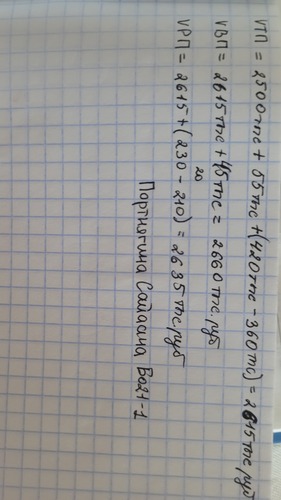 VТП = 2500тыс + 55тыс + (420тыс - 360тыс) = 2615тыс.руб
VВП = 2615тыс + 45тыс = 2660тыс.руб
20
VРП = 2615 + (230 - 210) = 2635тыс.руб
Портнягина Сайаана Во21-1